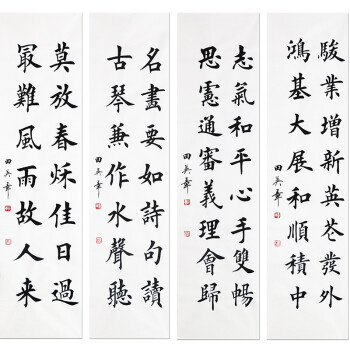 駿業增新英華發外
鴻基大展和順積中
田英章
志氣和平心手雙暢
思慮通審義理會歸
田英章
名畫要如詩句讀
古琴兼作水聲聽
田英章
莫放春秋佳日過
冣難風雨故人来
田英章